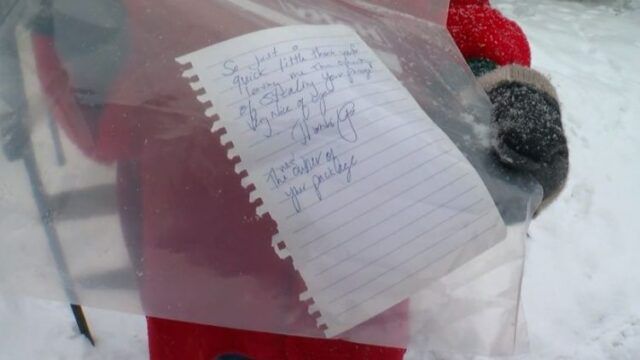 So Just a
quick little thank you
leaving me the opportunity
of stealing your package
Very Nice of you
Thanks
The new
owner of
your package